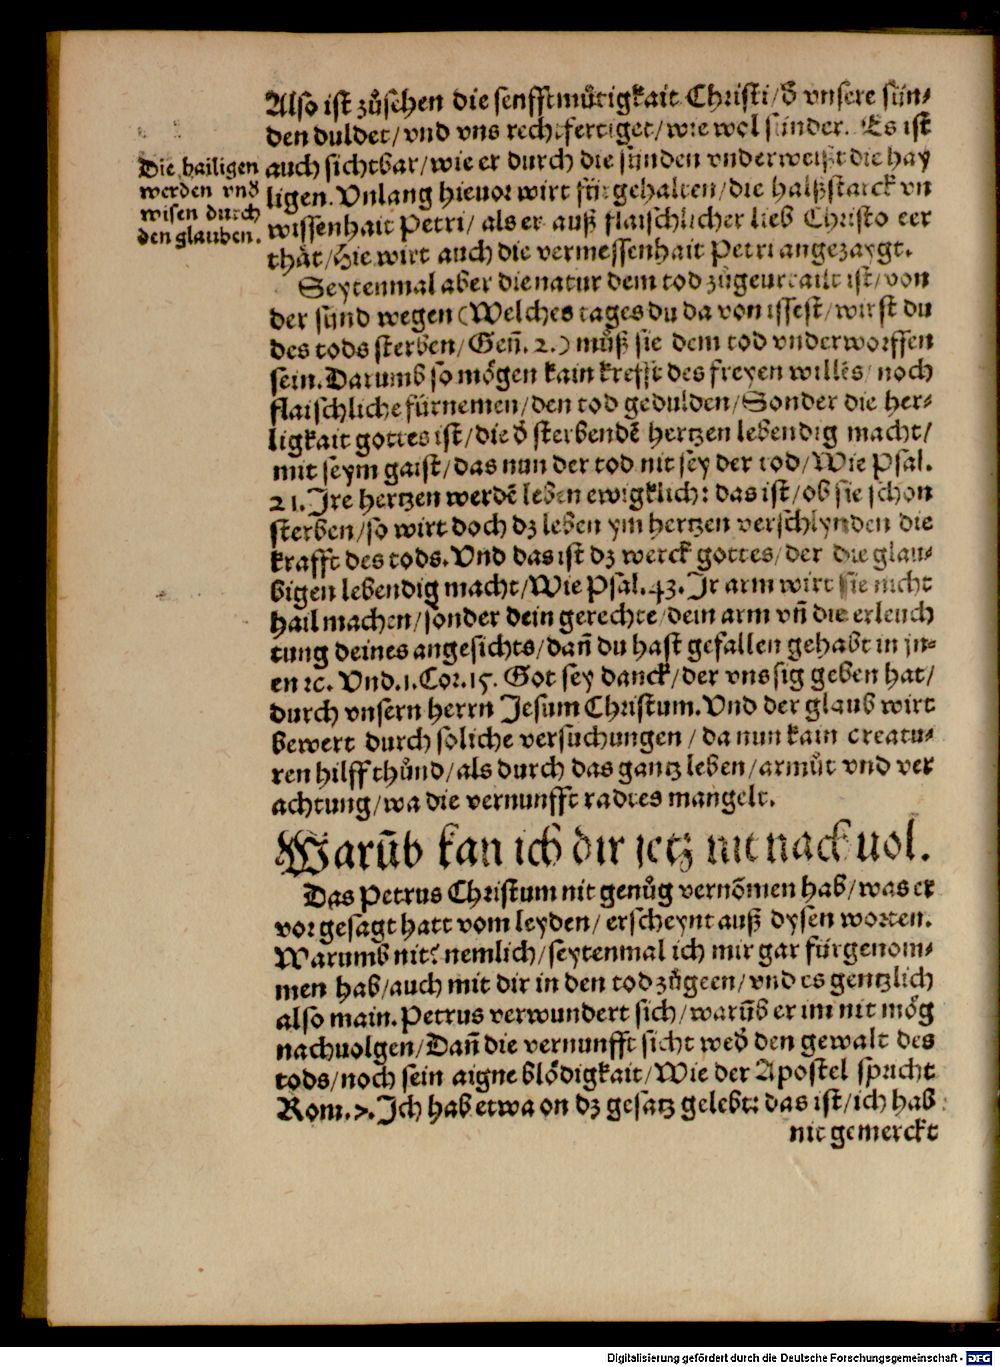 Also ist zůsehen die senfftmůtigkait Christi/ d̕ vnsere sün⸗
den duldet/ vnd vns rechtfertiget/ wie wol sünder. Es ist
auch sichtbar/ wie er durch die sünden vnderweißt die hay
ligen. Vnlang hieuor wirt fürgehalten/ die halßstarck vn
wissenhait Petri/ als er auß flaischlicher lieb Christo eer
thät/ Hie wirt auch die vermessenhait Petri angezaygt.
Die hailigen
werden vnd̕
wisen durch
den glauben.
Seytenmal aber die natur dem tod zůgeurtailt ist/ von
der sünd wegen (Welches tages du da von issest/ wirst du
des tods sterben/ Geñ. 2.) můß sie dem tod vnderworffen
sein. Darumb so mögen kain krefft des freyen willēs/ noch
flaischliche fürnemen/ den tod gedulden/ Sonder die her⸗
ligkait gottes ist/ die d̕ sterbendē hertzen lebendig macht/
mit seym gaist/ das nun der tod nit sey der tod/ Wie Psal.
21. Jre hertzen werdē leben ewigklich: das ist/ ob sie schon
sterben/ so wirt doch dz leben ym hertzen verschlynden die
krafft des tods. Vnd das ist dz werck gottes/ der die glau⸗
bigen lebendig macht/ Wie Psal. 43. Jr arm wirt sie nicht
hail machen/ sonder dein gerechte/ dein arm vñ die erleuch
tung deines angesichts/ dañ du hast gefallen gehabt in jn⸗
en ꝛc. Vnd. 1. Cor. 15. Got sey danck/ der vns sig geben hat/
durch vnsern herrn Jesum Christum. Vnd der glaub wirt
bewert durch soliche versuchungen/ da nun kain creatu⸗
ren hilff thůnd/ als durch das gantz leben/ armůt vnd ver
achtung/ wa die vernunfft radtes mangelt.
Warūb kan ich dir jetz nit nachuol.
Das Petrus Christum nit genůg vernōmen hab/ was er
vor gesagt hatt vom leyden/ erscheynt auß dysen worten.
Warumb nit? nemlich/ seytenmal ich mir gar fürgenom⸗
men hab/ auch mit dir in den tod zůgeen/ vnd es gentzlich
also main. Petrus verwundert sich/ warūb er im nit mög
nachuolgen/ Dañ die vernunfft sicht wed̕ den gewalt des
tods/ noch sein aigne blödigkait/ Wie der Apostel spricht
Rom. 7. Jch hab etwa on dz gesatz gelebt: das ist/ ich hab
nit gemerckt
Digitalisierung gefördert durch die Deutsche Forschungsgemeinschaft - DFG